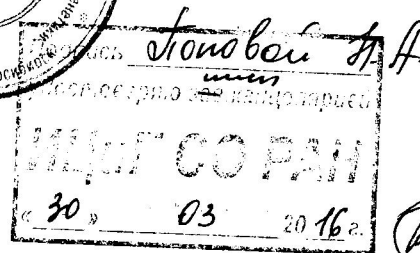 Подпись Поповой Н. А
удостоверяю зав канцелярией
ИЦиГ СО РАН
« 30 » 03 20 16 г.